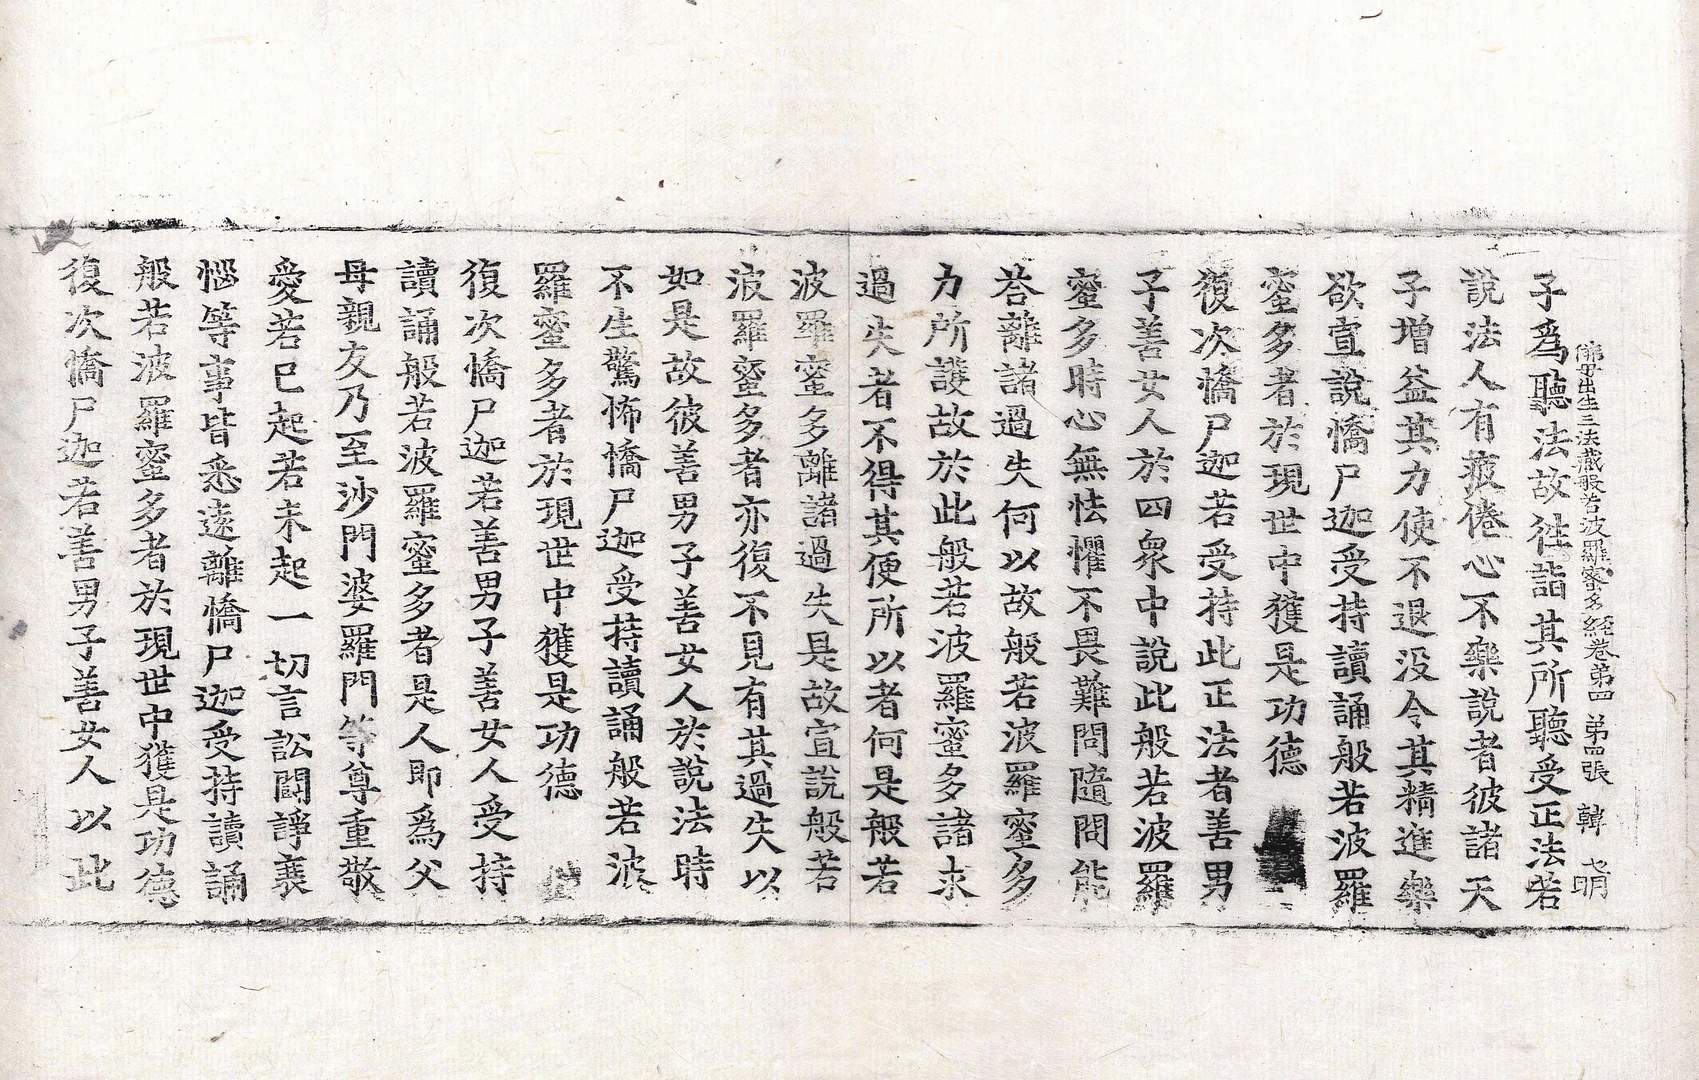 佛母出生三法藏般若波羅蜜多經卷第四 第四張 韓
子爲聽法故往詣其所聽受正法若
說法人有疲倦心不樂說者彼諸天
子增益其力使不退没令其精進樂
欲宣說憍尸迦受持讀誦般若波羅
蜜多者於現世中獲是功德
復次憍尸迦若受持此正法者善男
子善女人於四衆中說此般若波羅
蜜多時心無怯懼不畏難問隨問能
荅離諸過失何以故般若波羅蜜多
力所護故於此般若波羅蜜多諸求
過失者不得其便所以者何是般若
波羅蜜多離諸過失是故宣說般若
波羅蜜多者亦復不見有其過失以
如是故彼善男子善女人於說法時
不生驚怖憍尸迦受持讀誦般若波
羅蜜多者於現世中獲是功德
復次憍尸迦若善男子善女人受持
讀誦般若波羅蜜多者是人即爲父
母親友乃至沙門婆羅門等尊重敬
愛若已起若未起一切言訟鬪諍衰
惱等事皆悉遠離憍尸迦受持讀誦
般若波羅蜜多者於現世中獲是功德
復次憍尸迦若善男子善女人以此